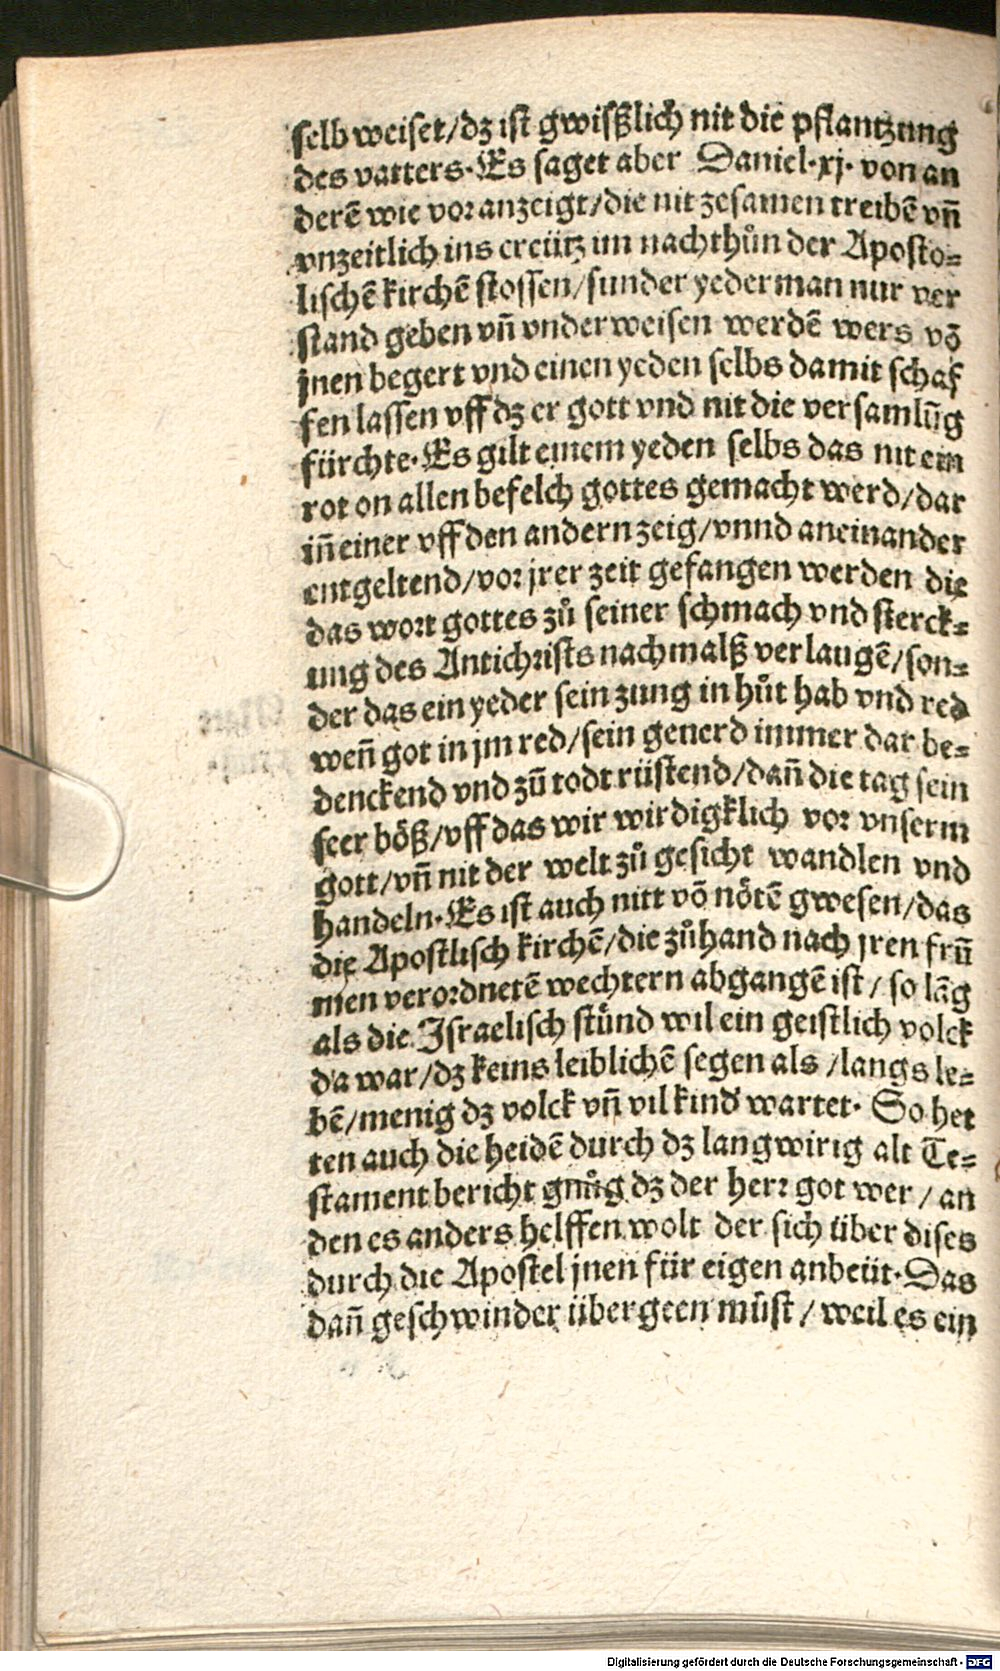 selb weiset/dz ist gwißlich nit die pflantzung
des vatters. Es saget aber Daniel. xj. von an
derē wie vor anzeigt/die nit zesamen treibē vñ
vnzeitlich ins creütz im nachthůn der Aposto⸗
lischē kirchē stossen/sunder yederman nur ver
stand geben vñ vnderweisen werdē wers vō
jnen begert vnd einen yeden selbs damit schaf
fen lassen vff dz er gott vnd nit die versamlūg
fürchte. Es gilt einem yeden selbs das nit ein
rot on allen befelch gottes gemacht werd/dar
iñ einer vff den andern zeig/vnnd aneinander
entgeltend/vor jrer zeit gefangen werden die
das wort gottes zů seiner schmach vnd sterck⸗
ung des Antichrists nachmalß verlaugē/son⸗
der das ein yeder sein zung in hůt hab vnd red
weñ got in jm red/sein generd immer dar be⸗
denckend vnd zū todt rüstend/dañ die tag sein
seer böß/vff das wir wirdigklich vor vnserm
gott/vñ nit der welt zů gesicht wandlen vnd
handeln. Es ist auch nitt vō nötē gwesen/das
die Apostlisch kirchē/die zůhand nach jren frū
men verordnetē wechtern abgangē ist/so lāg
als die Israelisch stünd wil ein geistlich volck
da war/dz keins leiblichē segen als/langs le⸗
bē/menig dz volck vñ vil kind wartet. So het
ten auch die heidē durch dz langwirig alt Te⸗
stament bericht gnůg dz der herr got wer/an
den es anders helffen wolt der sich über dises
durch die Apostel jnen für eigen anbeüt. Das
dañ geschwinder übergeen müst/weil es ein
Digitalisierung gefördert durch die Deutsche Forschungsgemeinschaft - DFG